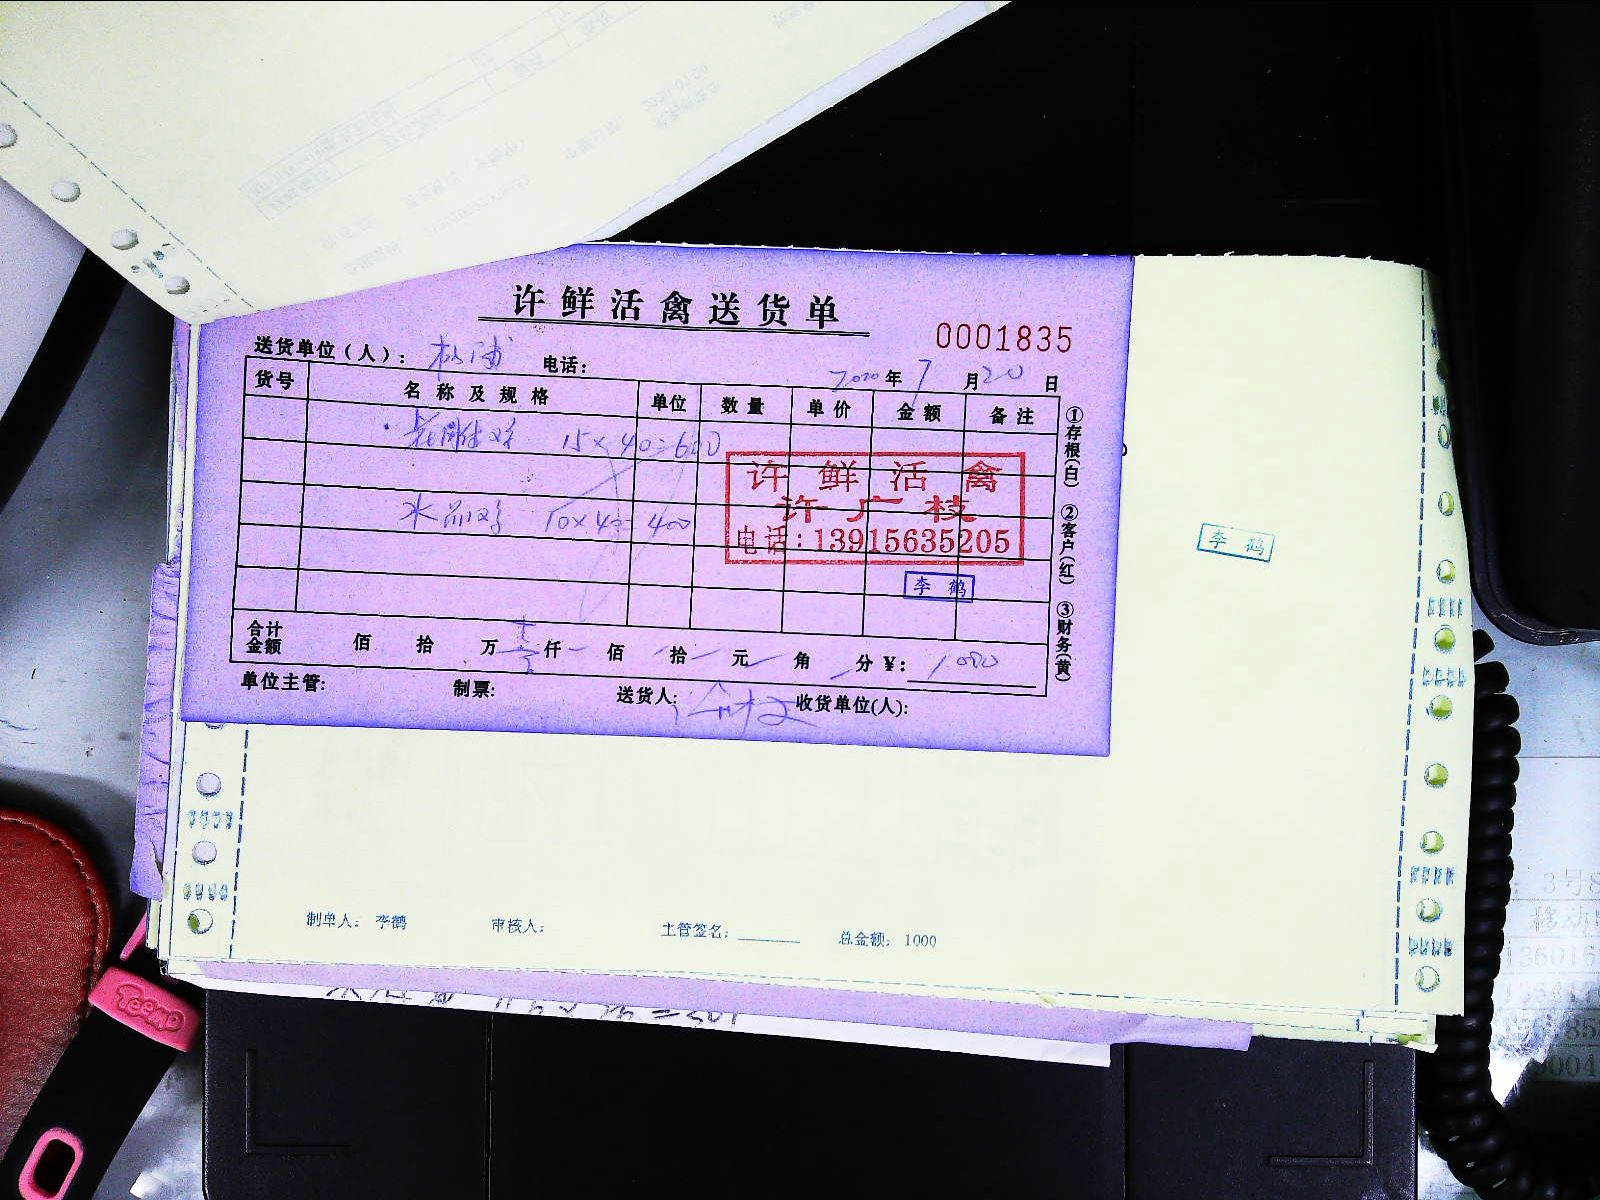 许鲜活禽送货单
0001835
送货单位（人）： 电话：
2020年7月20日
货号 名称及规格 单位 数量 单价 金额 备注
花雕鸡 15×40=600
水晶鸡 10×40=400
许鲜活禽
许广枝
电话：13915635205
李鹤
合计金额 佰 拾 万 仟 佰 拾 元 角 分 ¥：1000
单位主管: 制票: 送货人: 收货单位(人):
①存根(白) ②客户(红) ③财务(黄)
李鹤
制单人： 李鹤 审核人： 主管签名： 总金额： 1000
Teemo
3号
移动